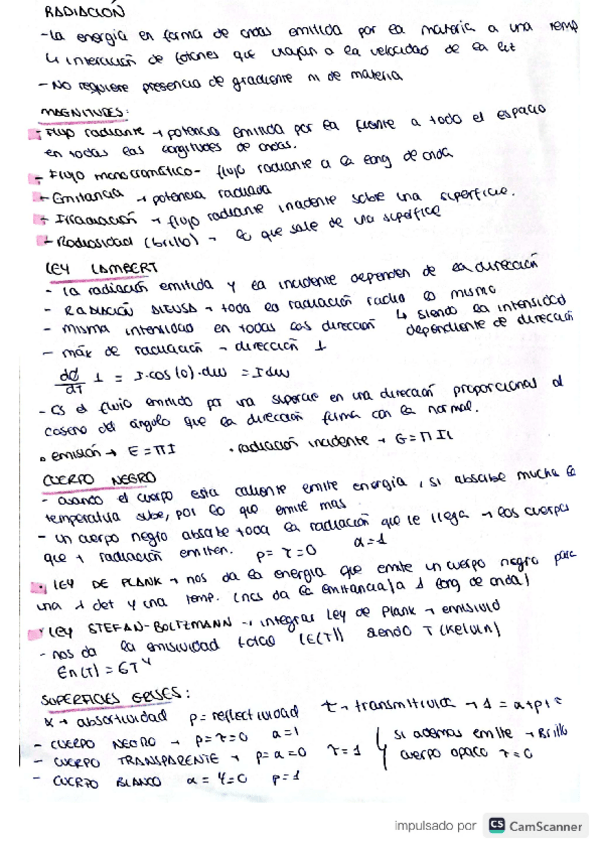 RADIACIÓN
- La energía en forma de ondas emitida por la materia a una temp
↳ interacción de fotones que viajan a la velocidad de la luz
- No requiere presencia de gradiente ni de materia
MAGNITUDES:
- Flujo radiante → potencia emitida por la fuente a todo el espacio
en todas las longitudes de ondas.
- Flujo monocromático - flujo radiante a la long de onda
- Emitancia → potencia radiada
- Irradiación → flujo radiante incidente sobre una superficie.
- Radiosidad (brillo) → lo que sale de una superficie
LEY LAMBERT
- la radiación emitida y la incidente dependen de la dirección
- RADIACIÓN DIFUSA → toda la radiación radia lo mismo
- misma intensidad en todas las dirección ↳ siendo la intensidad
dependiente de dirección
- máx de radiación → dirección ⊥
dϕ/dT ⊥ = I·cos(0)·dw = I dw
- Es el flujo emitido por una superficie en una dirección proporcional al
coseno del ángulo que la dirección forma con la normal.
• emisión → E = πI • radiación incidente → G = π Ii
CUERPO NEGRO
- cuando el cuerpo esta caliente emite energía, si absorbe mucha la
temperatura sube, por lo que emite mas
- un cuerpo negro absorbe toda la radiación que le llega → los cuerpos
que + radiación emiten. ρ = τ = 0 α = 1
• LEY DE PLANK → nos da la energía que emite un cuerpo negro para
una λ det y una temp. (nos da la emitancia/a 1 long de onda)
LEY STEFAN-BOLTZMANN → integrar Ley de Plank → emisivid
- nos da la emisividad total (E(T)) siendo T (Kelvin)
En(T) = σT⁴
SUPERFICIES GRISES:
α → absortividad ρ = reflectividad τ → transmitividad → 1 = α+ρ+τ
- CUERPO NEGRO → ρ = τ = 0 α = 1
- CUERPO TRANSPARENTE → ρ = α = 0 τ = 1
- CUERPO BLANCO α = τ = 0 ρ = 1
si ademas emite → Brillo
cuerpo opaco τ = 0
impulsado por CS CamScanner